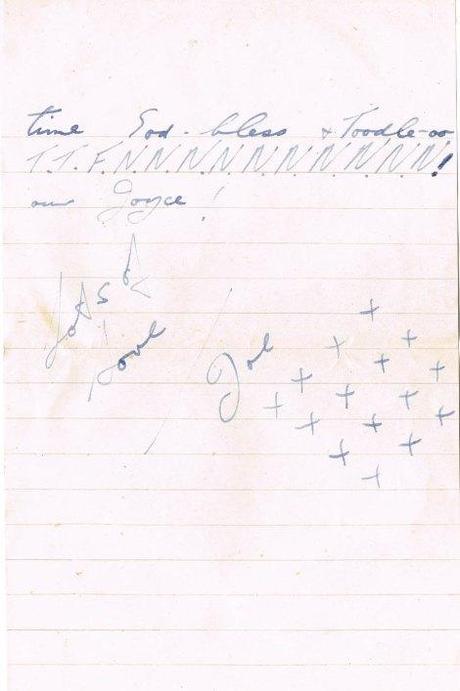 time God-bless & Toodle-oo
T.T.F.N.N.N.N.N.N.N.N.N.N.N!
our Joyce!
Lots of
Love
Joe